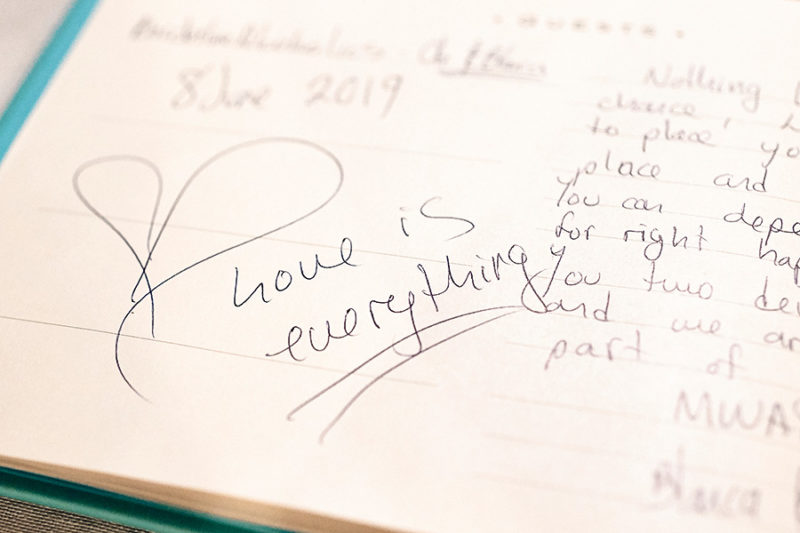 GUESTS
8 June 2019
love is
everything
Nothing
chance,
to place, yo
place and
You can depe
for right hap
you two de
and we ar
part of
MWAS
Blanca